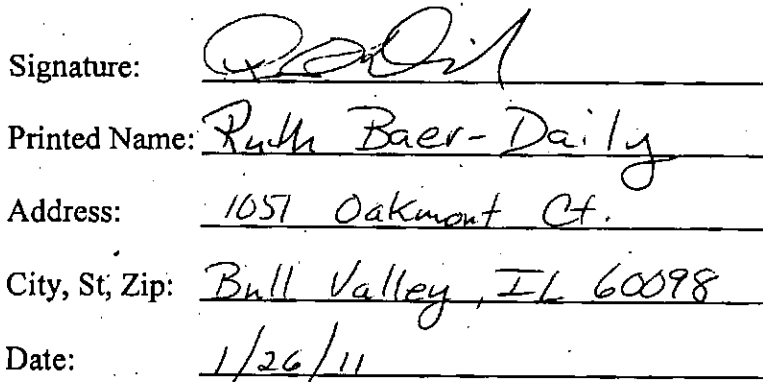 Signature:
Printed Name: Ruth Baer-Daily
Address: 1051 Oakmont Ct.
City, St, Zip: Bull Valley, IL 60098
Date: 1/26/11